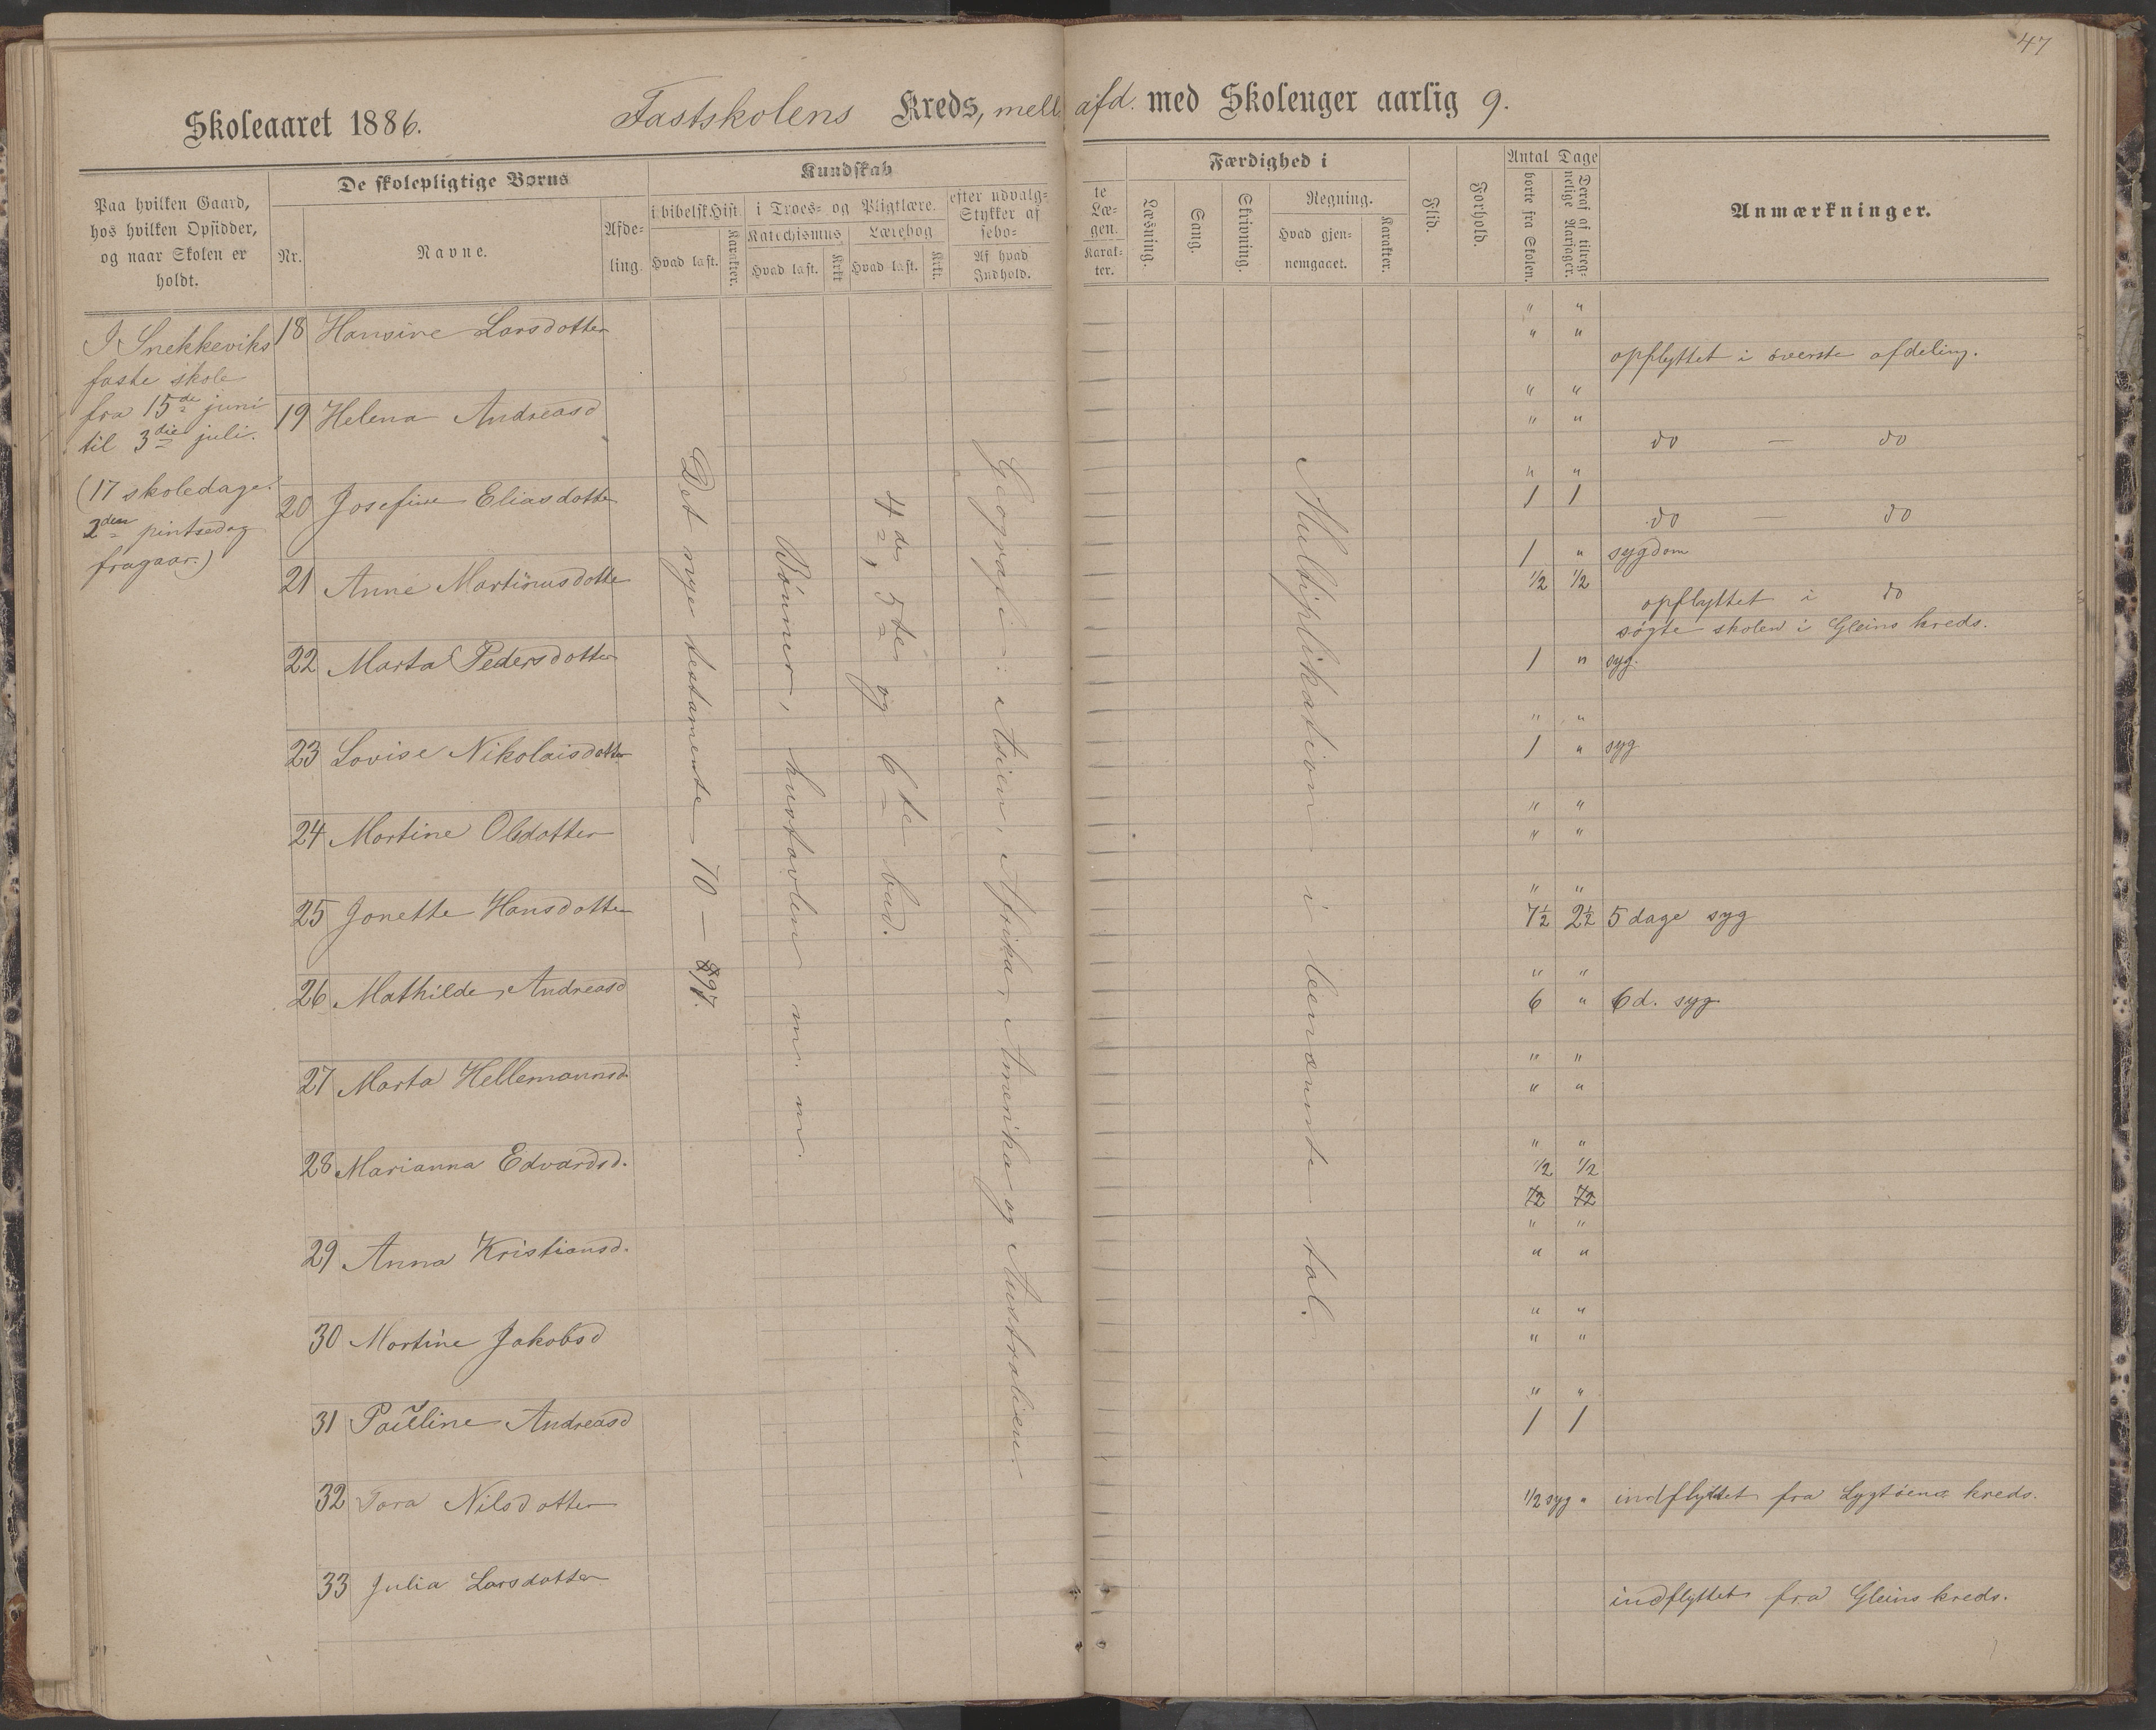 47
Skoleaaret 1886. Fastskolens Kreds, mell. afd. med Skoleuger aarlig 9.
Paa hvilken Gaard,
hos hvilken Opsidder,
og naar Skolen er
holdt.
De skolepligtige Børns
Nr.
Navne.
Afde-
ling.
Kundskab
i bibelsk Hist.
Hvad læst.
Karakter.
i Troes- og Pligtlære.
Katechismus
Hvad læst.
Krkt.
Lærebog
Hvad læst.
Krkt.
efter udvalg-
Stykker af
sebo-
Af hvad
Indhold.
te
Læ-
gen.
Karak-
ter.
Færdighed i
Læsning.
Sang.
Skrivning.
Regning.
Hvad gjen-
nemgaaet.
Karakter.
Flid.
Forhold.
Antal Dage
borte fra Skolen.
Deraf af tilreg-
nelige Aarsager.
Anmærkninger.
I Snekkeviks
faste skole
fra 15de juni
til 3die juli.
(17 skoledage.
2den pintsedag
fragaar.)
Det nye testamente 70 — 97.
Bönner, hustavlen m. m.
4de, 5te og 6te bud.
Geografi: Asien, Afrika, Amerika og Australien.
Multiplikation i beenævnte tal.
" "
18 Hansine Larsdotter " "
opflyttet i överste afdeling.
" "
19 Helena Andreasd " "
do — do
" "
20 Josefine Eliasdotter 1 1
do — do
1 " sygdom
21 Anne Martinusdotter 1/2 1/2
opflyttet i do
søgte skolen i Gleins kreds.
22 Marta Pedersdotter 1 " syg.
" "
23 Lovise Nikolaisdotter 1 " syg
" "
24 Martine Olsdotter " "
" "
25 Jonette Hansdotter 7½ 2½ 5 dage syg
" "
26 Mathilde Andreasd 6 " 6 d. syg
" "
27 Marta Hellemannsd. " "
" "
28 Marianna Edvardsd. 1/2 1/2
" "
29 Anna Kristiansd. " "
" "
30 Martine Jakobsd " "
" "
31 Pauline Andreasd 1 1
32 Tora Nilsdotter 1/2 syg " indflyttet fra Lygtöens kreds.
33 Julia Larsdotter
indflyttet fra Gleins kreds.